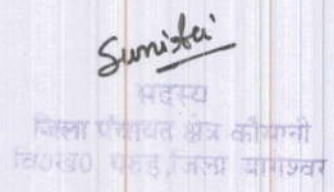 Sunita
सदस्य
जिला पंचायत क्षेत्र कौसानी
वि०ख० गरुड़ जिला बागेश्वर